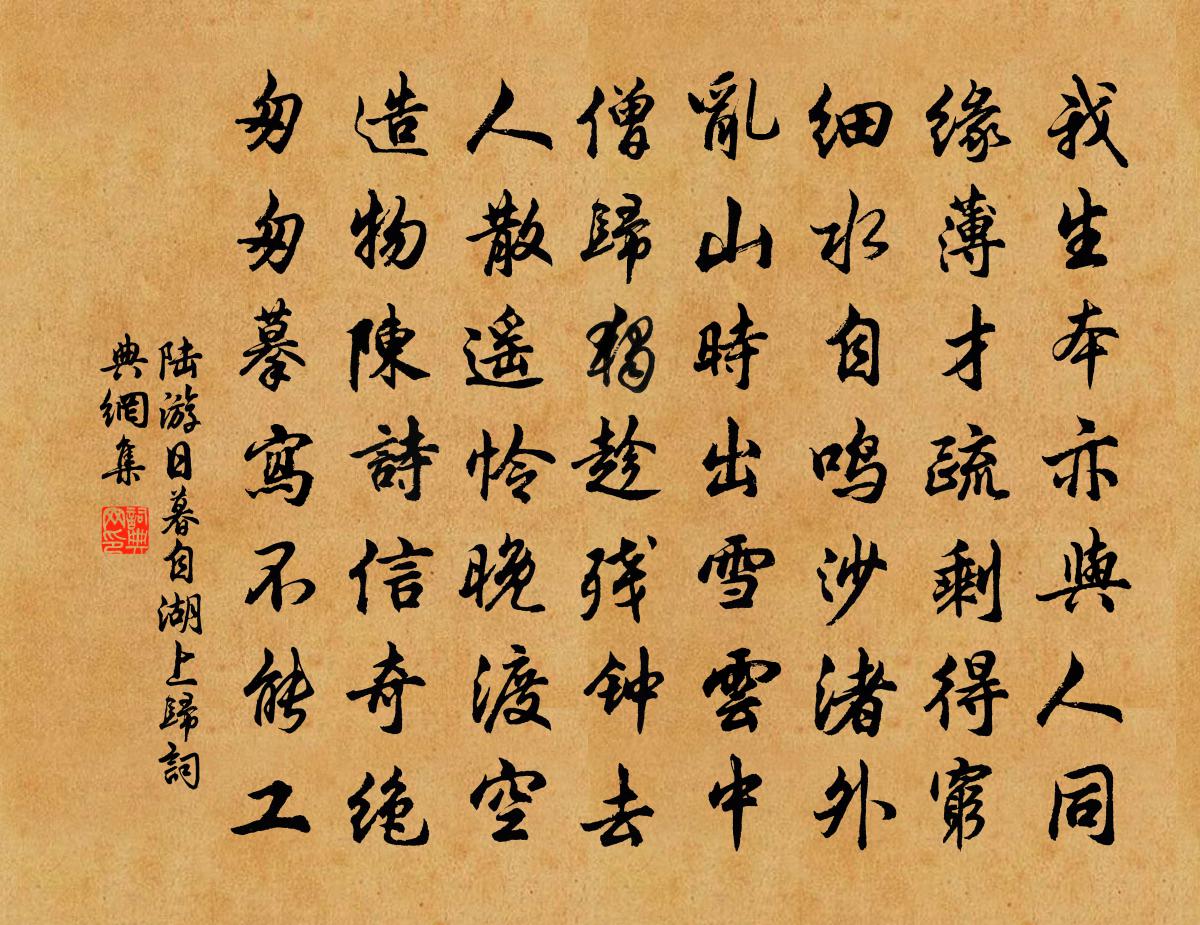 我生本亦與人同
缘薄才疏剩得窮
细水自鸣沙渚外
亂山時出雪雲中
僧歸獨趁残钟去
人散遥怜晚渡空
造物陳詩信奇绝
匆匆摹寫不能工
陆游日暮自湖上歸詞
典網集
詞典网印